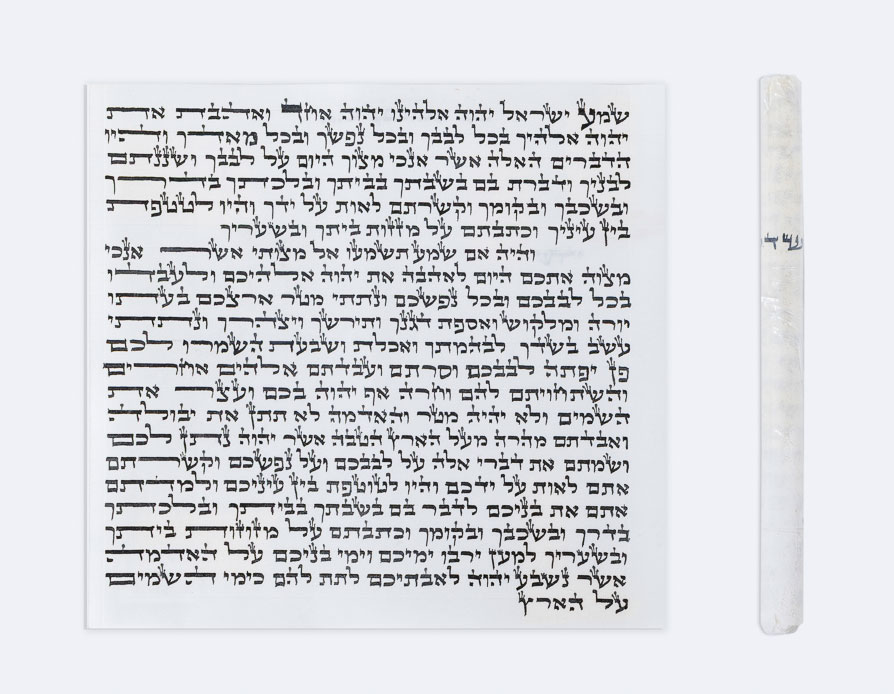 שמע ישראל יהוה אלהינו יהוה אחד ואהבת את
יהוה אלהיך בכל לבבך ובכל נפשך ובכל מאדך והיו
הדברים האלה אשר אנכי מצוך היום על לבבך ושננתם
לבניך ודברת בם בשבתך בביתך ובלכתך בדרך
ובשכבך ובקומך וקשרתם לאות על ידך והיו לטטפת
בין עיניך וכתבתם על מזזות ביתך ובשעריך
והיה אם שמע תשמעו אל מצותי אשר אנכי
מצוה אתכם היום לאהבה את יהוה אלהיכם ולעבדו
בכל לבבכם ובכל נפשכם ונתתי מטר ארצכם בעתו
יורה ומלקוש ואספת דגנך ותירשך ויצהרך ונתתי
עשב בשדך לבהמתך ואכלת ושבעת השמרו לכם
פן יפתה לבבכם וסרתם ועבדתם אלהים אחרים
והשתחויתם להם וחרה אף יהוה בכם ועצר את
השמים ולא יהיה מטר והאדמה לא תתן את יבולה
ואבדתם מהרה מעל הארץ הטבה אשר יהוה נתן לכם
ושמתם את דברי אלה על לבבכם ועל נפשכם וקשרתם
אתם לאות על ידכם והיו לטוטפת בין עיניכם ולמדתם
אתם את בניכם לדבר בם בשבתך בביתך ובלכתך
בדרך ובשכבך ובקומך וכתבתם על מזוזות ביתך
ובשעריך למען ירבו ימיכם וימי בניכם על האדמה
אשר נשבע יהוה לאבתיכם לתת להם כימי השמים
על הארץ
שדי